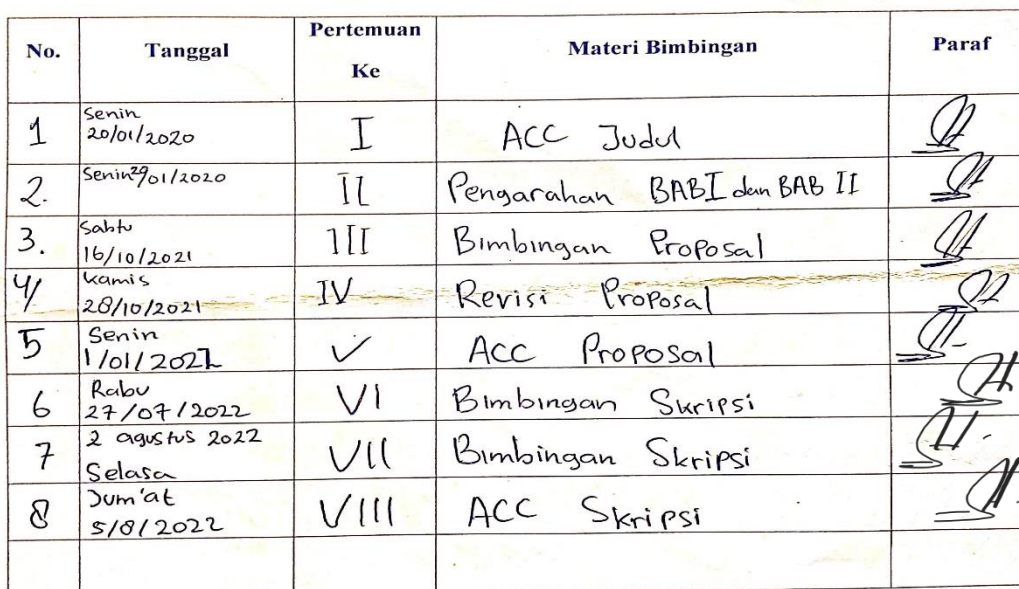 No. Tanggal Pertemuan Ke Materi Bimbingan Paraf
1 Senin 20/01/2020 I ACC Judul
2. Senin 29/01/2020 II Pengarahan BAB I dan BAB II
3. Sabtu 16/10/2021 III Bimbingan Proposal
4/ Kamis 28/10/2021 IV Revisi Proposal
5 Senin 1/01/2022 V ACC Proposal
6 Rabu 27/07/2022 VI Bimbingan Skripsi
7 2 agustus 2022 Selasa VII Bimbingan Skripsi
8 Jum'at 5/8/2022 VIII ACC Skripsi